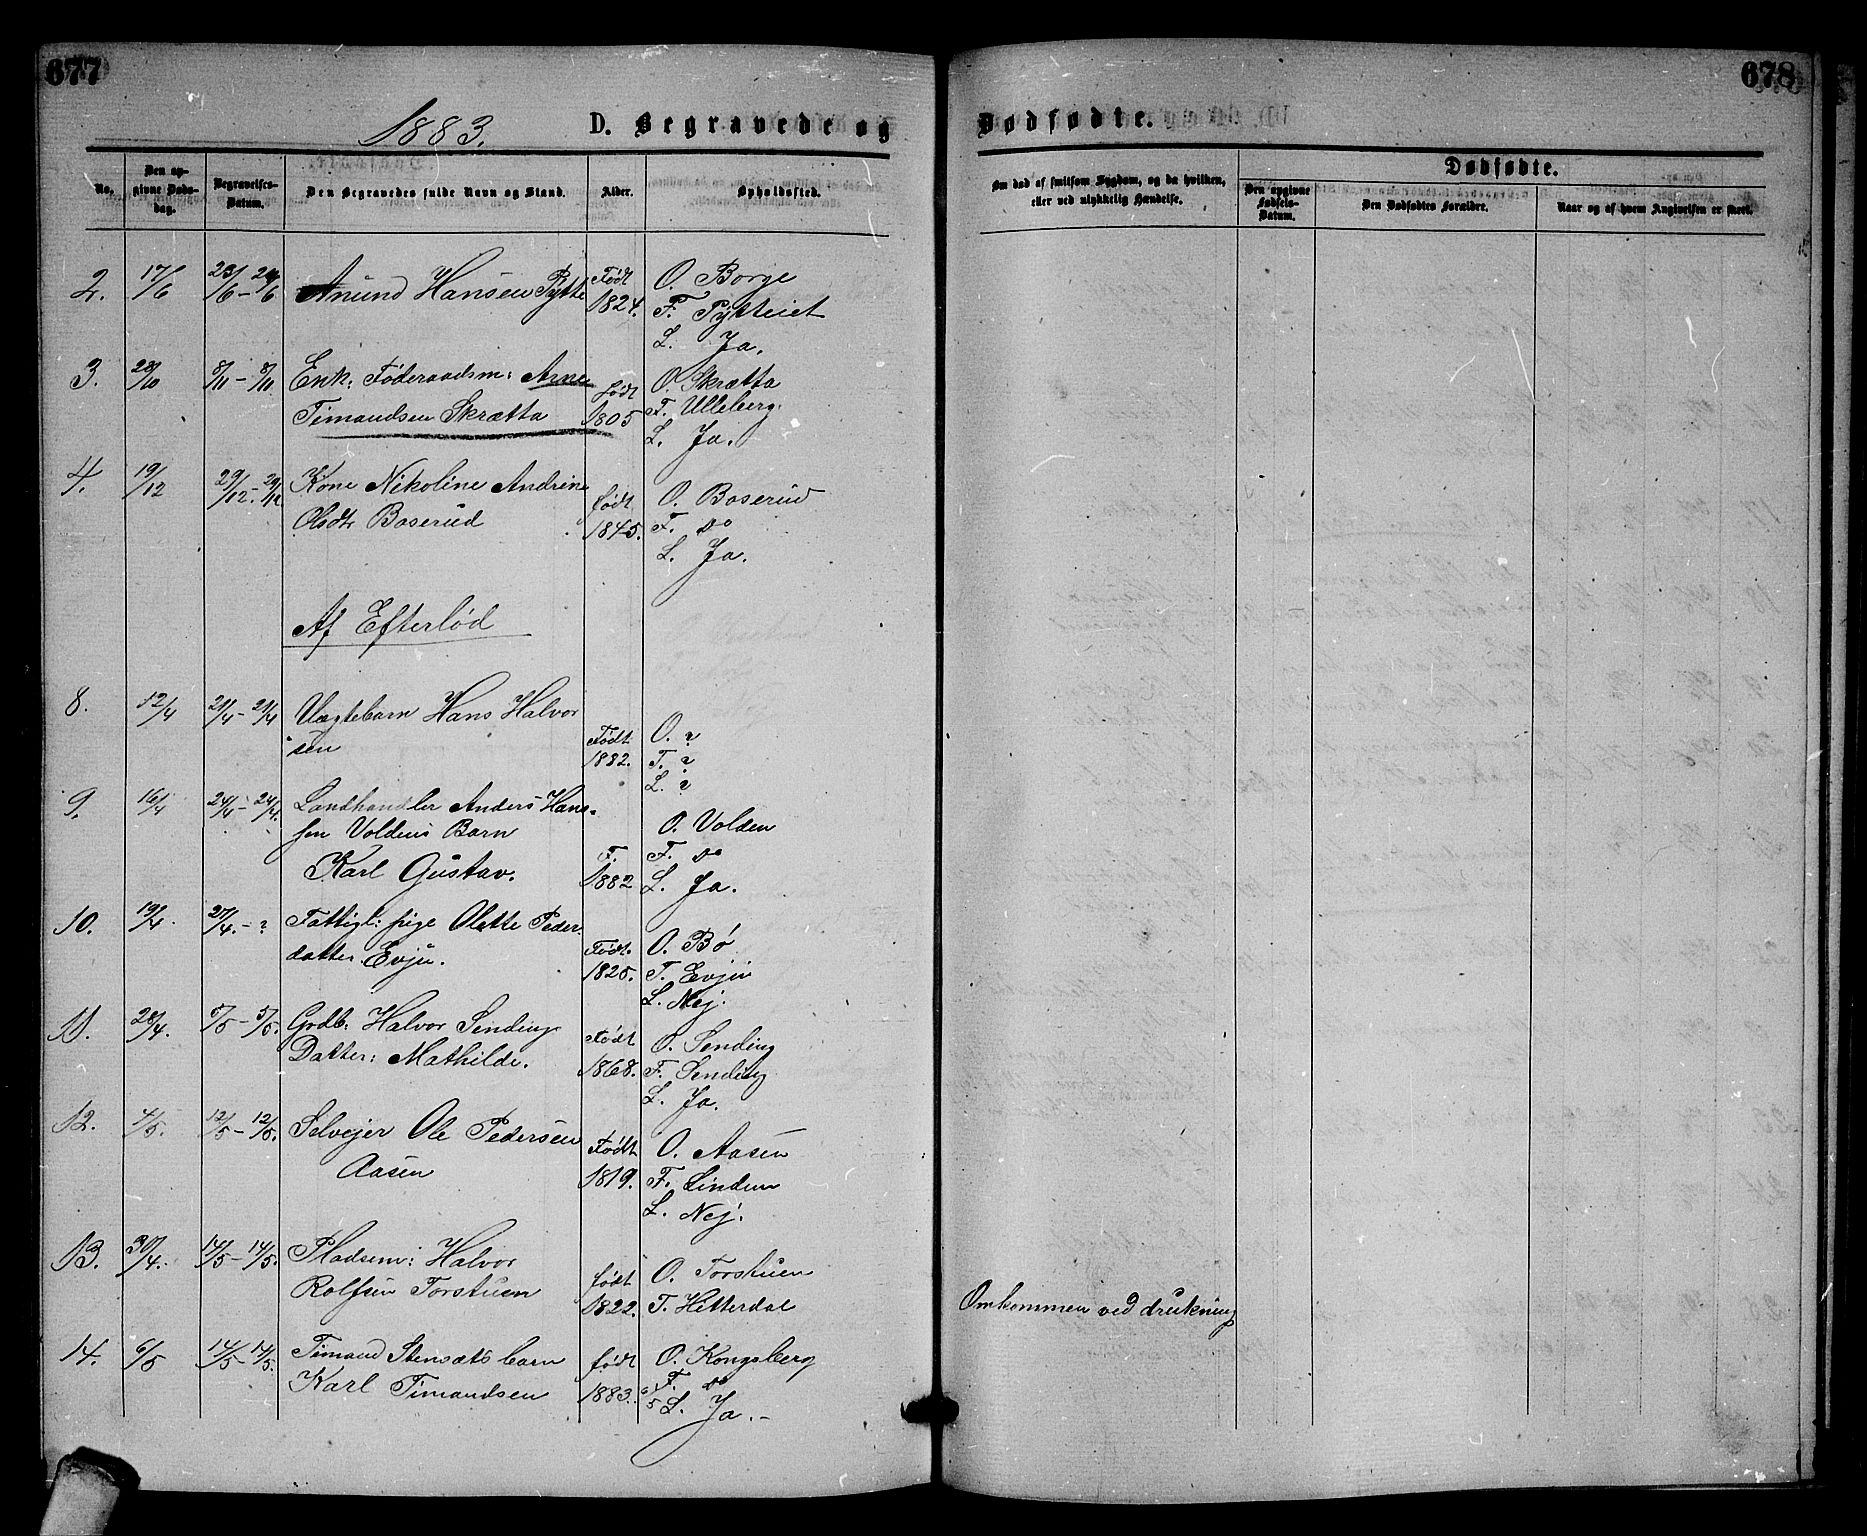 677
1883.
D. Begravede og
No.
Den op-
givne Døds-
dag.
Begravelses-
Datum.
Den Begravedes fulde Navn og Stand.
Alder.
Opholdssted.
2. 17/6 23/6 - 24/6 Anund Hansen Pytte Født O. Borge
1824. F. Pytteiet
L. Ja.
3. 28/10 8/11 - 8/11 Enk: Føderaadsm: Arne født O. Skrætta
Timandsen Skrætta 1805 F. Ulleberg.
L. Ja.
4. 19/12 29/12 - 29/12 Kone Nikoline Andrine født O. Boserud
Olsdtr Boserud 1845. F. do
L. Ja.
Af Efterlød
8. 12/4 21/4 - 21/4 Vægtebarn Hans Halvor
sen Født O. ?
1882. F. ?
L. ?
9. 16/4 24/4 - 24/4. Landhandler Anders Han-
sen Voldens Barn O. Volden
Karl Gustav. F. F. do
1882 L. Ja.
10. 19/4. 27/4. - ? Fattigl: pige Olette Peder
datter Evju. Født. O. Bø
1825. F. Evju
L. Nej.
11. 28/4. 5/5 - 5/5. Grdb: Halvor Sendings Født O. Sending
Datter: Mathilde. 1868. F. Sending
L. Ja.
12. 4/5. 12/5 - 12/5. Selvejer Ole Pedersen Født O. Aasen
Aasen 1819. F. Lindem
L. Nej.
13. 30/4. 14/5 - 14/5. Pladsem: Halvor født O. Torstuen
Rolfsen Torstuen 1822. F. Hitterdal
14. 6/5 14/5 - 14/5. Timand Stensæts barn født O. Kongsberg
Karl Timandsen 1883. F. do
L. Ja.
678
Dødfødte.
Om død af smitsom Sygdom, og da hvilken,
eller ved ulykkelig Hændelse.
Dødfødte.
Den opgivne
Fødsels-
Datum.
Den Dødfødtes Forældre.
Naar og af hvem Angivelsen er skeet.
Omkommen ved drukning